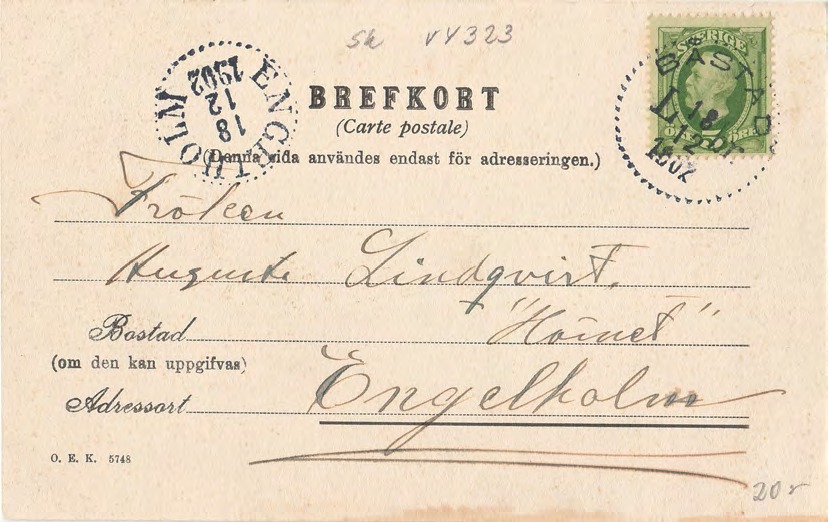 sk v4323
SVERIGE
BÅSTAD
18
12
1902
ENGELHOLM
18
12
1902
BREFKORT
(Carte postale)
(Denna sida användes endast för adresseringen.)
Fröken
Augusta Lindqvist.
Bostad "Hörnet"
(om den kan uppgifvas)
Adressort Engelholm
O. E. K. 5748
20:-